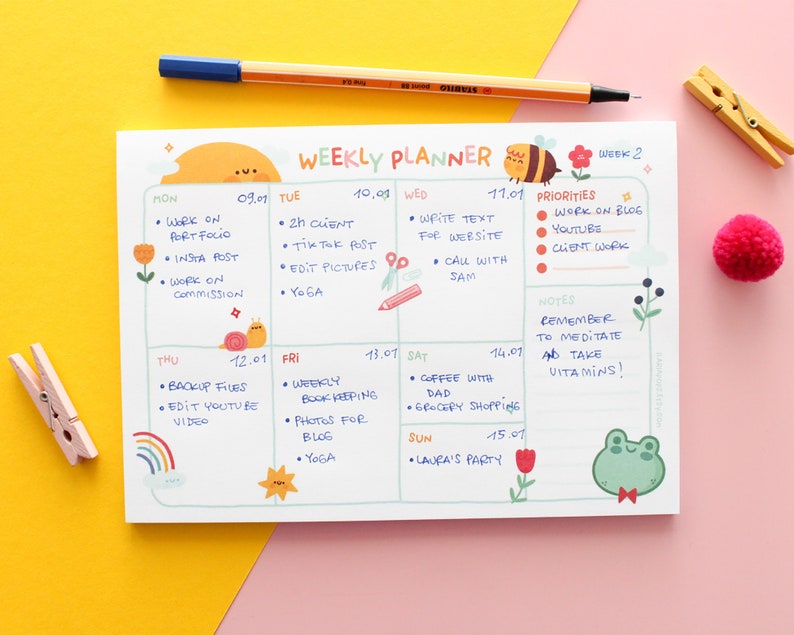 STABILO point 88 fine 0.4
WEEKLY PLANNER
WEEK 2
MON 09.01
• WORK ON
PORTFOLIO
• INSTA POST
• WORK ON
COMMISSION
TUE 10.01
• 2h CLIENT
• TIKTOK POST
• EDIT PICTURES
• YOGA
WED 11.01
• WRITE TEXT
FOR WEBSITE
• CALL WITH
SAM
PRIORITIES
WORK ON BLOG
YOUTUBE
CLIENT WORK
NOTES
REMEMBER
TO MEDITATE
AND TAKE
VITAMINS!
THU 12.01
• BACKUP FILES
• EDIT YOUTUBE
VIDEO
FRI 13.01
• WEEKLY
BOOKKEEPING
• PHOTOS FOR
BLOG
• YOGA
SAT 14.01
• COFFEE WITH
DAD
• GROCERY SHOPPING
SUN 15.01
• LAURA'S PARTY